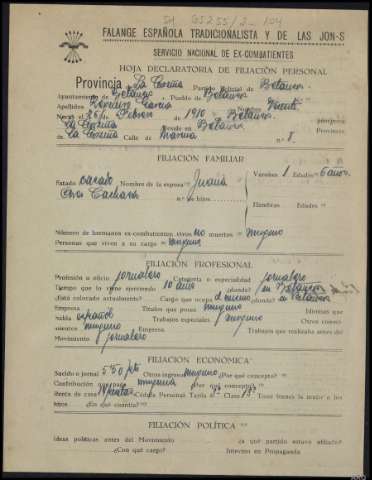 FALANGE ESPAÑOLA TRADICIONALISTA Y DE LAS JON-S
SERVICIO NACIONAL DE EX-COMBATIENTES
HOJA DECLARATORIA DE FILIACIÓN PERSONAL
Provincia La Coruña Partido Judicial de Betanzos
Ayuntamiento de Betanzos Pueblo de Betanzos
Apellidos García Nombre Vicente
Nació el 26 de Febrero de 1910 Betanzos
La Coruña Reside en Betanzos provincia
de La Coruña Calle de Marina n.º
FILIACIÓN FAMILIAR
Estado casado Nombre de la esposa Juana Varones 1 Edades 6 años
n.º de hijos Hembras Edades
Número de hermanos ex-combatientes, vivos no muertos ninguno
Personas que viven a su cargo ninguna
FILIACIÓN PROFESIONAL
Profesión u oficio jornalero Categoría o especialidad jornalero
Tiempo que la viene ejerciendo 10 años ¿dónde? en Betanzos
¿Está colocado actualmente? Cargo que ocupa el mismo ¿dónde? en Betanzos
Empresa Títulos que posee ninguno Idiomas que
habla español Trabajos especiales ninguno Otros conoci-
mientos ninguno Empresa Trabajos que realizaba antes del
Movimiento jornalero
FILIACIÓN ECONÓMICA
Sueldo o jornal 5'50 pts Otros ingresos ninguno ¿Por qué concepto?
Contribución ninguna Por qué concepto?
Renta de casa Cédula Personal Tarifa Clase Tiene bienes la mujer o los
hijos ¿En qué cuantía?
FILIACIÓN POLÍTICA
Ideas políticas antes del Movimiento ¿a qué partido estuvo afiliado?
¿Con qué cargo? Intervino en Propaganda